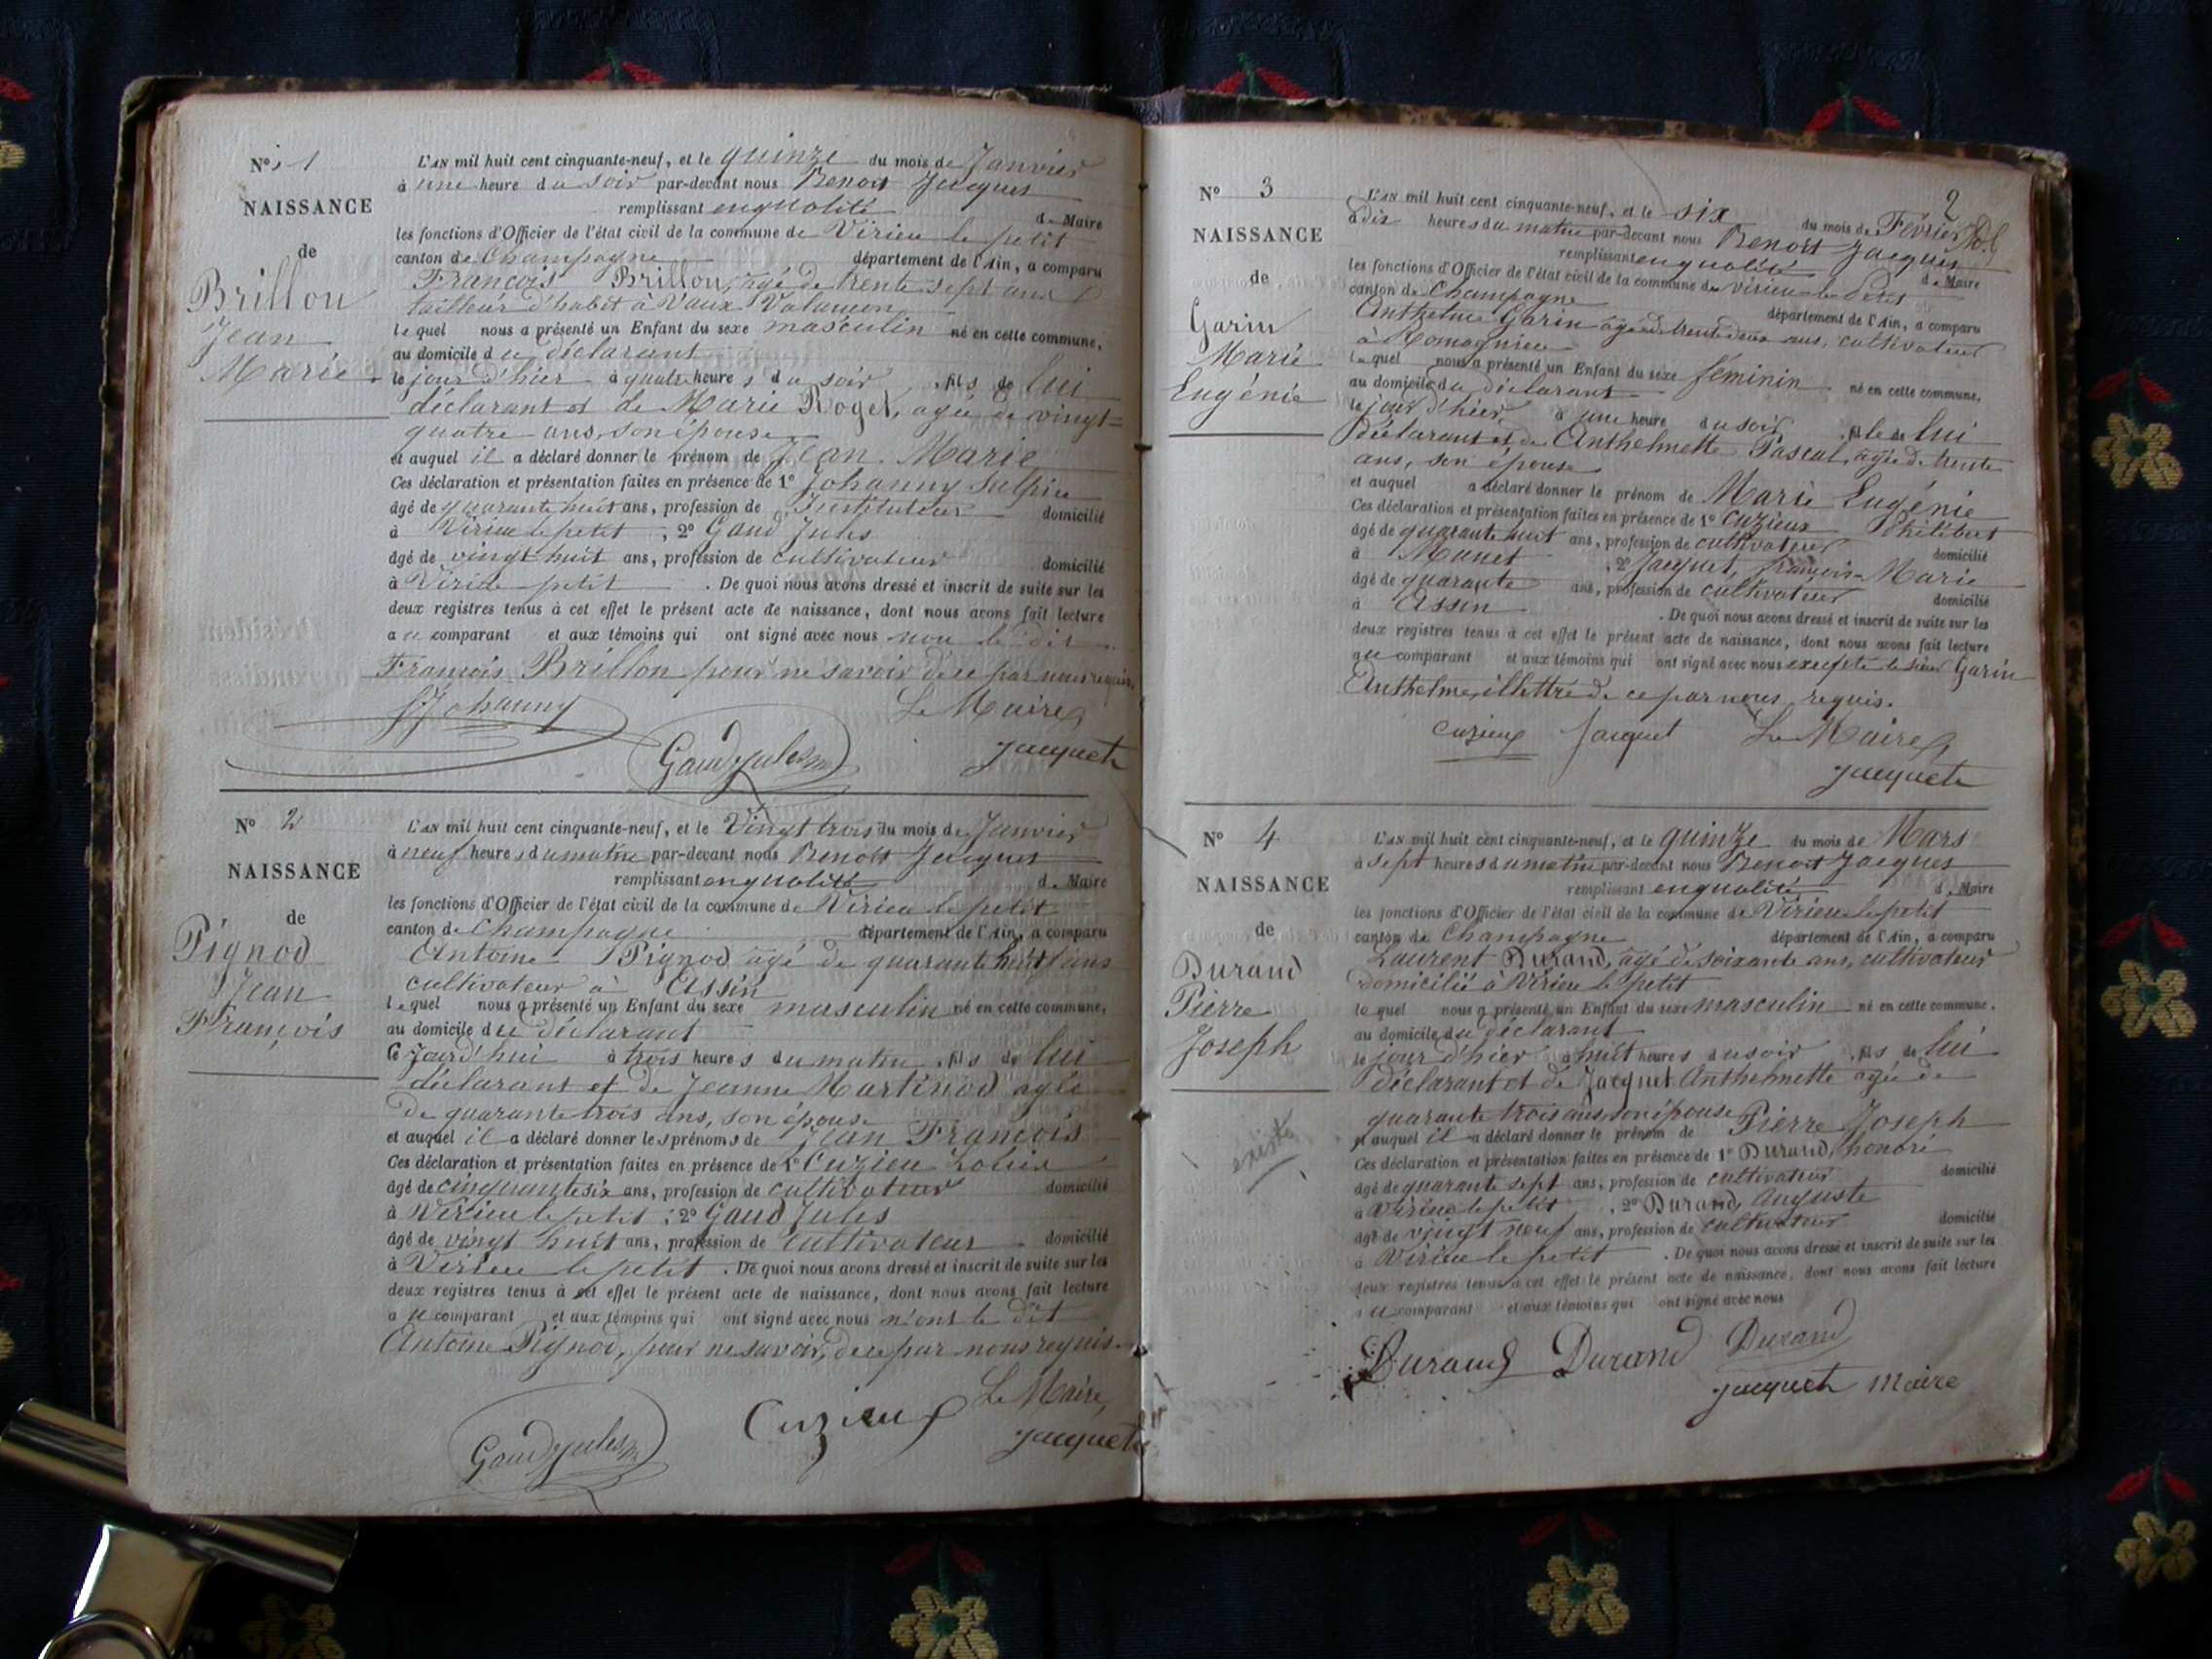 N° 1
NAISSANCE
de
Brillon
Jean
Marie
L'AN mil huit cent cinquante-neuf, et le quinze du mois de Janvier
à une heure du soir par-devant nous Benoit Jacques
remplissant en qualité de Maire
les fonctions d'Officier de l'état civil de la commune de Virieu le petit
canton de Champagne département de l'Ain, a comparu
François Brillon, agé de trente sept ans
tailleur d'habit à Vaux Valameon
lequel nous a présenté un Enfant du sexe masculin né en cette commune,
au domicile du déclarant
le jour d'hier à quatre heures du soir, fils de lui
déclarant et de Marie Roget, agée de vingt=
quatre ans, son épouse
et auquel il a déclaré donner le prénom de Jean Marie
Ces déclaration et présentation faites en présence de 1° Johanny Sulpice
âgé de quarante huit ans, profession de Instituteur domicilié
à Virieu le petit ; 2° Gaud Jules
âgé de vingt huit ans, profession de cultivateur domicilié
à Virieu petit . De quoi nous avons dressé et inscrit de suite sur les
deux registres tenus à cet effet le présent acte de naissance, dont nous avons fait lecture
au comparant et aux témoins qui ont signé avec nous non le dit
François Brillon pour ne savoir de ce par nous requis.
SJohanny
Le Maire
Gaud jules
Jacquet
N° 2
NAISSANCE
de
Pignod
Jean
François
L'AN mil huit cent cinquante-neuf, et le Vingt trois du mois de Janvier
à neuf heures du matin par-devant nous Benoit Jacques
remplissant en qualité de Maire
les fonctions d'Officier de l'état civil de la commune de Virieu le petit
canton de Champagne département de l'Ain, a comparu
Antoine Pignod agé de quarante huit ans
cultivateur à Assin
lequel nous a présenté un Enfant du sexe masculin né en cette commune,
au domicile du déclarant
le Jourd'hui à trois heures du matin, fils de lui
déclarant et de Jeanne Martinod agée
de quarante trois ans, son épouse
et auquel il a déclaré donner les prénoms de Jean François
Ces déclaration et présentation faites en présence de 1° Cuzieu Louis
âgé de cinquante six ans, profession de cultivateur domicilié
à Virieu le petit ; 2° Gaud Jules
âgé de vingt huit ans, profession de cultivateur domicilié
à Virieu le petit . De quoi nous avons dressé et inscrit de suite sur les
deux registres tenus à cet effet le présent acte de naissance, dont nous avons fait lecture
au comparant et aux témoins qui ont signé avec nous n'ont le dit
Antoine Pignod, pour ne savoir, de ce par nous requis.
Le Maire,
Gaud jules
Cuzieux
Jacquet
2
N° 3
NAISSANCE
de
Garin
Marie
Eugénie
L'AN mil huit cent cinquante-neuf, et le six du mois de Février
à dix heures du matin par-devant nous Benoit Jacques
remplissant en qualité de Maire
les fonctions d'Officier de l'état civil de la commune de Virieu le Petit
canton de Champagne département de l'Ain, a comparu
Anthelme Garin âgé de trente deux ans, cultivateur
à Romagnieu
lequel nous a présenté un Enfant du sexe féminin né en cette commune,
au domicile du déclarant
le jour d'hier à une heure du soir fille de lui
déclarant et de Anthelmette Pascal, agée de trente
ans, son épouse
et auquel a déclaré donner le prénom de Marie Eugénie
Ces déclaration et présentation faites en présence de 1° Cuzieux Philibert
âgé de quarante huit ans, profession de cultivateur domicilié
à Munet ; 2° Jacquet, françois-Marie
âgé de quarante ans, profession de cultivateur domicilié
à Assin . De quoi nous avons dressé et inscrit de suite sur les
deux registres tenus à cet effet le présent acte de naissance, dont nous avons fait lecture
au comparant et aux témoins qui ont signé avec nous excepté le sieur Garin
Anthelme, illettré de ce par nous requis.
Cuzieux Jacquet Le Maire
Jacquet
N° 4
NAISSANCE
de
Durand
Pierre
Joseph
existe
L'AN mil huit cent cinquante-neuf, et le quinze du mois de Mars
à sept heures du matin par-devant nous Benoit Jacques
remplissant en qualité de Maire
les fonctions d'Officier de l'état civil de la commune de Virieu le petit
canton de Champagne département de l'Ain, a comparu
Laurent Durand, agé de soixante ans, cultivateur
domicilié à Virieu le petit
lequel nous a présenté un Enfant du sexe masculin né en cette commune,
au domicile du déclarant
le jour d'hier à huit heures du soir, fils de lui
déclarant et de Jacquet Anthelmette agée de
quarante trois ans, son épouse
et auquel il a déclaré donner le prénom de Pierre Joseph
Ces déclaration et présentation faites en présence de 1° Durand, honoré
âgé de quarante sept ans, profession de cultivateur domicilié
à Virieu le petit , 2° Durand, Auguste
âgé de vingt neuf ans, profession de cultivateur domicilié
à Virieu le petit . De quoi nous avons dressé et inscrit de suite sur les
deux registres tenus à cet effet le présent acte de naissance, dont nous avons fait lecture
au comparant et aux témoins qui ont signé avec nous
Durand Durand Durand
Jacquet Maire